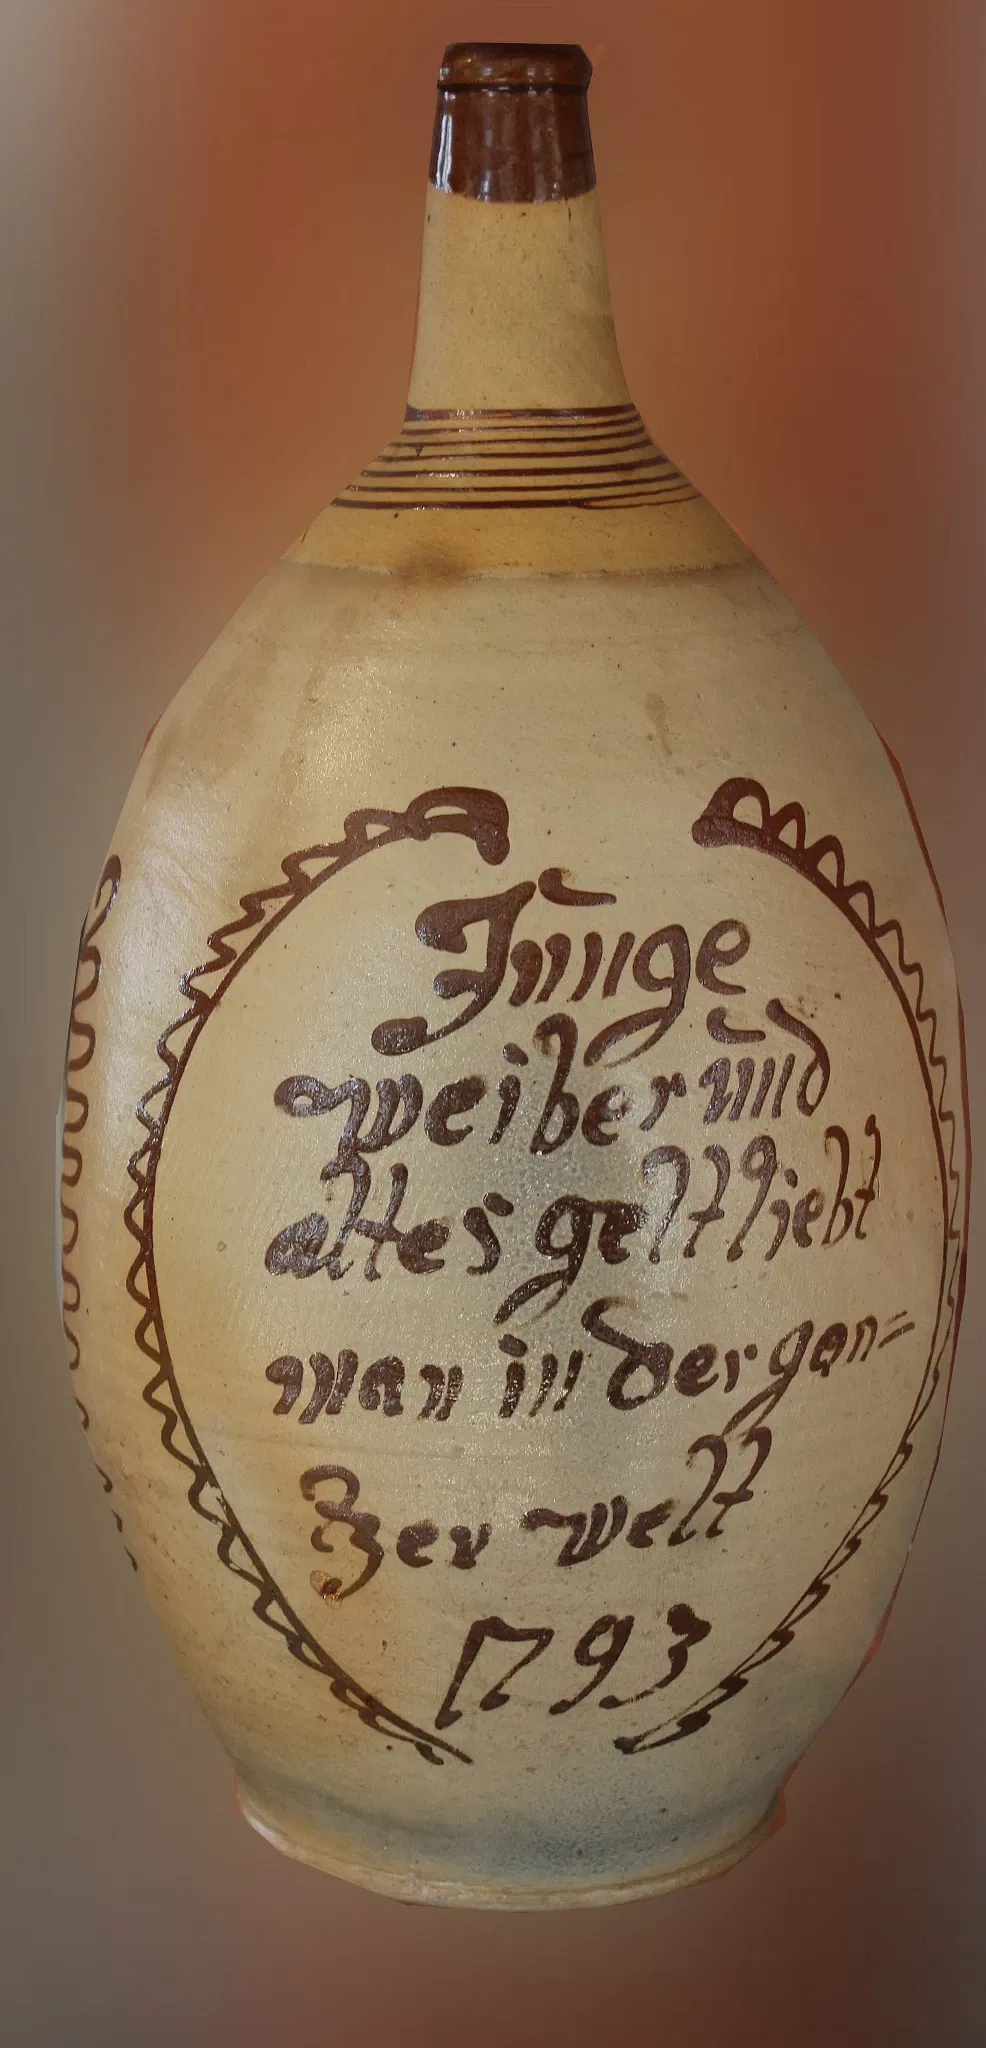 Junge
weiber und
altes gelt liebt
man in der gan=
zer welt
1793